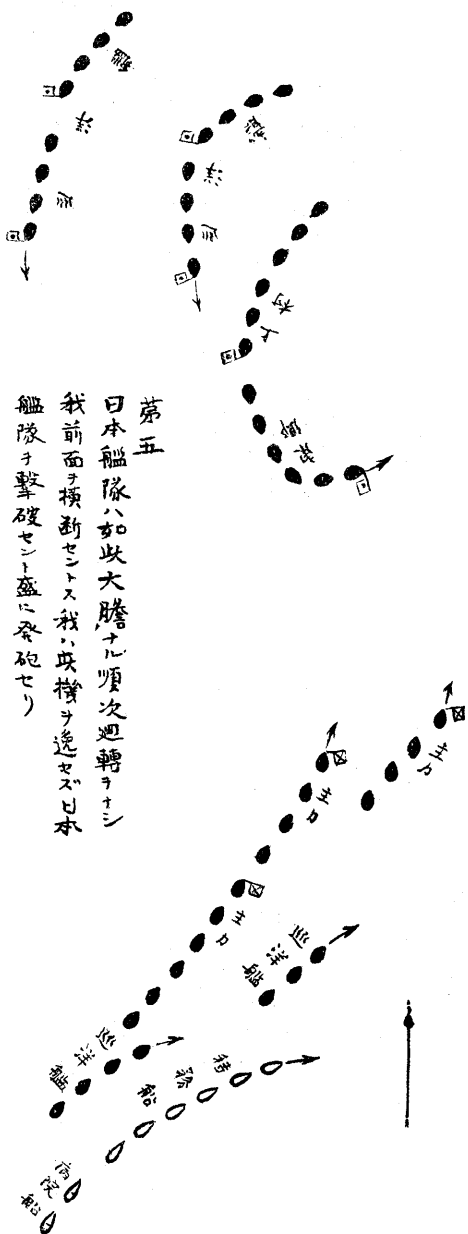 巡洋艦
巡洋艦
上村
東郷
第五
日本艦隊ハ如此大膽ナル順次廻轉ヲナシ
我前面ヲ横断セントス我ハ此機ヲ逸セズ日本
艦隊ヲ撃破セント盛ニ発砲セリ
主力
主力
主力
巡洋艦
巡洋艦
特務船
病院船